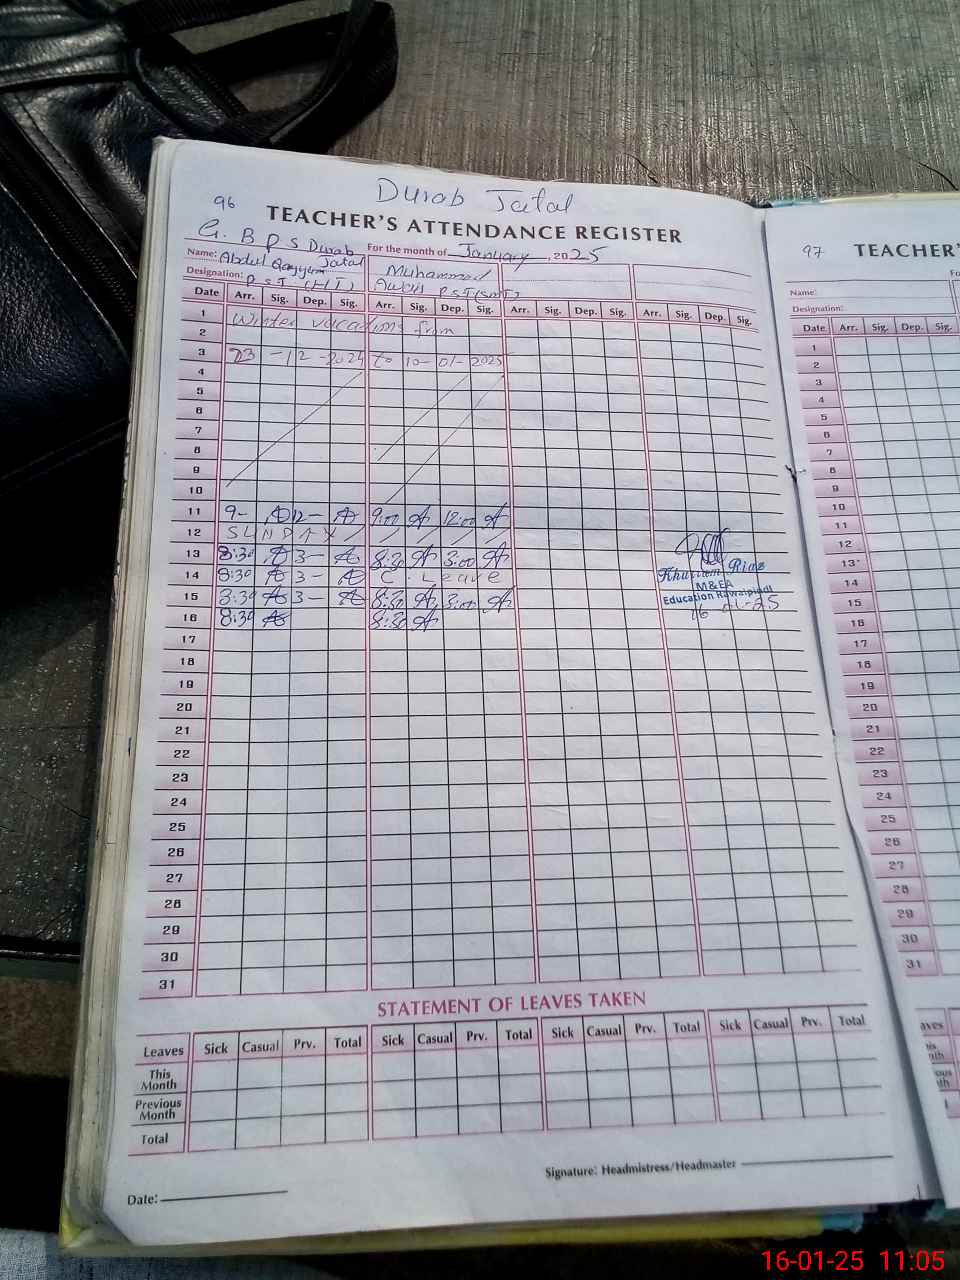 Durab Jatal
96
TEACHER'S ATTENDANCE REGISTER
G. B P S Durab Jatal
For the month of January, 2025
Name: Abdul Qayyum
Muhammad Awais
Designation: P S T. (H T)
P S T (SMT)
Date Arr. Sig. Dep. Sig. Arr. Sig. Dep. Sig. Arr. Sig. Dep. Sig. Arr. Sig. Dep. Sig.
1 Winter vacations from
2
3 23 - 12 - 2024 to 10 - 01 - 2025
4
5
6
7
8
9
10
11 9- 12- 9:00 12:00
12 SUNDAY
13 8:30 3- 8:30 3:00
14 8:30 3- C. Leave
15 8:30 3- 8:30 3:00
16 8:30 8:30
17
18
19
20
21
22
23
24
25
26
27
28
29
30
31
Khurram Riaz
M&EA
Education Rawalpindi
16-01-25
STATEMENT OF LEAVES TAKEN
Leaves Sick Casual Prv. Total Sick Casual Prv. Total Sick Casual Prv. Total Sick Casual Prv. Total
This Month
Previous Month
Total
Signature: Headmistress/Headmaster
Date:
97
TEACHER'
Fo
Name:
Designation:
Date Arr. Sig. Dep. Sig.
1
2
3
4
5
6
7
8
9
10
11
12
13
14
15
16
17
18
19
20
21
22
23
24
25
26
27
28
29
30
31
16-01-25 11:05